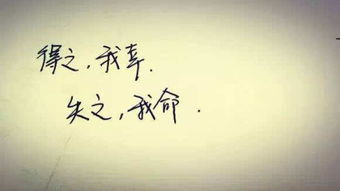 得之，我幸.
失之，我命.